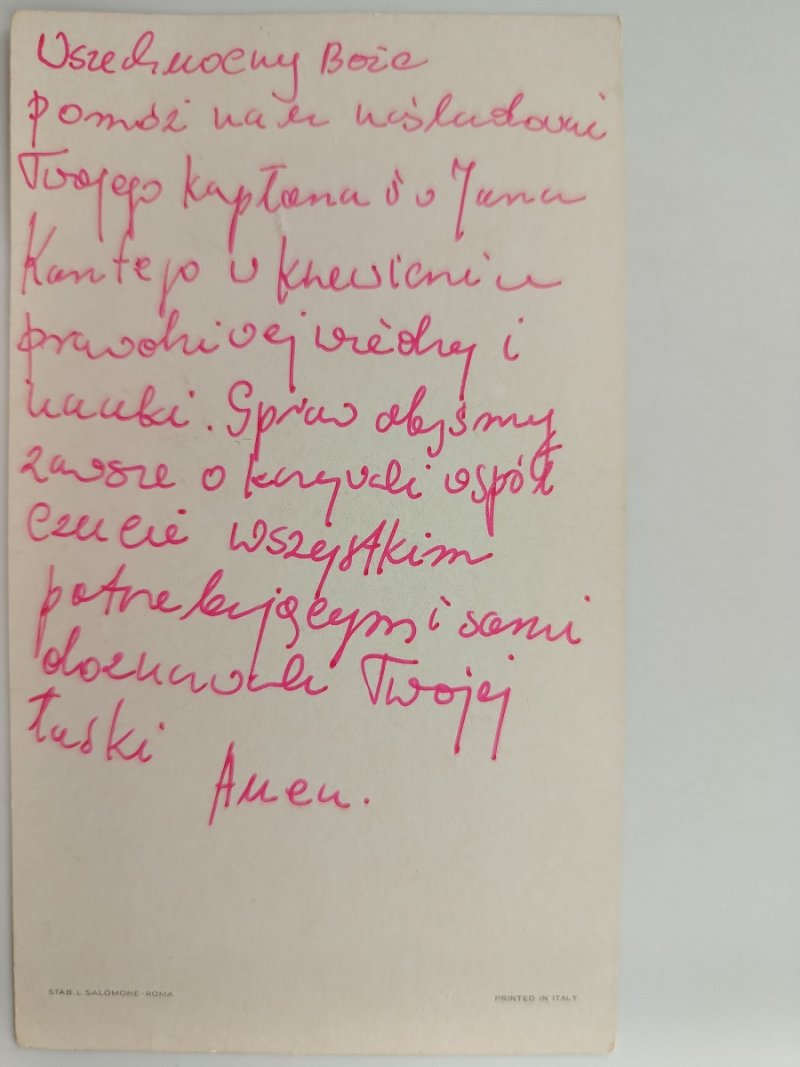 Wszechmocny Boże
pomóż nam naśladować
Twojego kapłana św Jana
Kantego w krzewieniu
prawdziwej wiedzy i
nauki. Spraw abyśmy
zawsze okazywali współ
czucie wszystkim
potrzebującym i sami
doznawali Twojej
łaski
Amen.
STAB. L. SALOMONE - ROMA
PRINTED IN ITALY